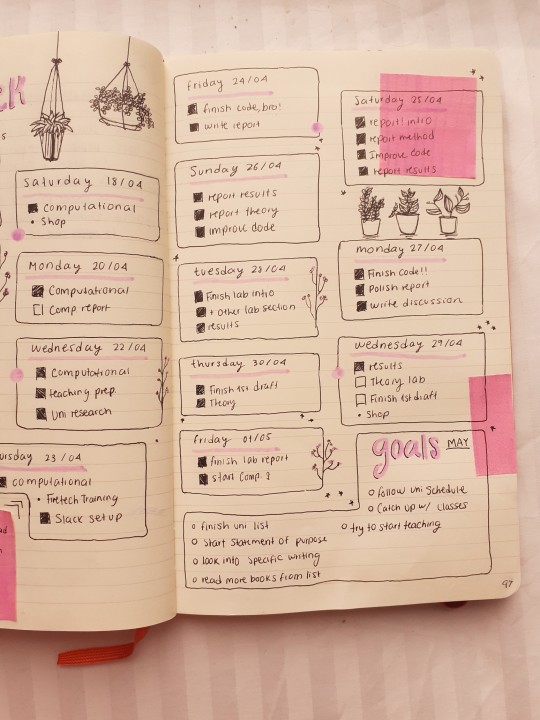 Saturday 18/04
Computational
Shop
Monday 20/04
Computational
Comp report
Wednesday 22/04
Computational
teaching prep.
Uni research
23/04
computational
Firetech Training
Slack setup
Friday 24/04
finish code, bro!
write report
Saturday 25/04
report! intro
report method
Improve code
report results
Sunday 26/04
report results
report theory
improve dode
monday 27/04
Finish code!!
Polish report
write discussion
tuesday 28/04
Finish lab intro
+ other lab section
results
wednesday 29/04
results
Theory lab
Finish 1st draft
Shop
thursday 30/04
Finish 1st draft
Theory
Friday 01/05
finish lab report
start Comp. 2
goals MAY
follow uni schedule
Catch up w/ classes
try to start teaching
finish uni list
Start statement of purpose
look into specific writing
read more books from list
97